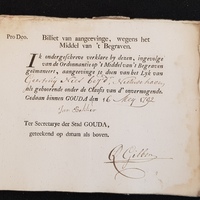 Pro Deo.
Billiet van aangeevinge, wegens het
Middel van 't Begraven.
Ik ondergeschreve verklare by deezen, ingevolge
van de Ordonnantie op 't Middel van 't Begraven
geëmaneert, aangeevinge te doen van het Lyk van
als gehoorende onder de Classis van d' onvermogenden.
Gedaan binnen GOUDA den 16 May 1792
Ter Secretarye der Stad GOUDA,
geteekend op datum als boven.